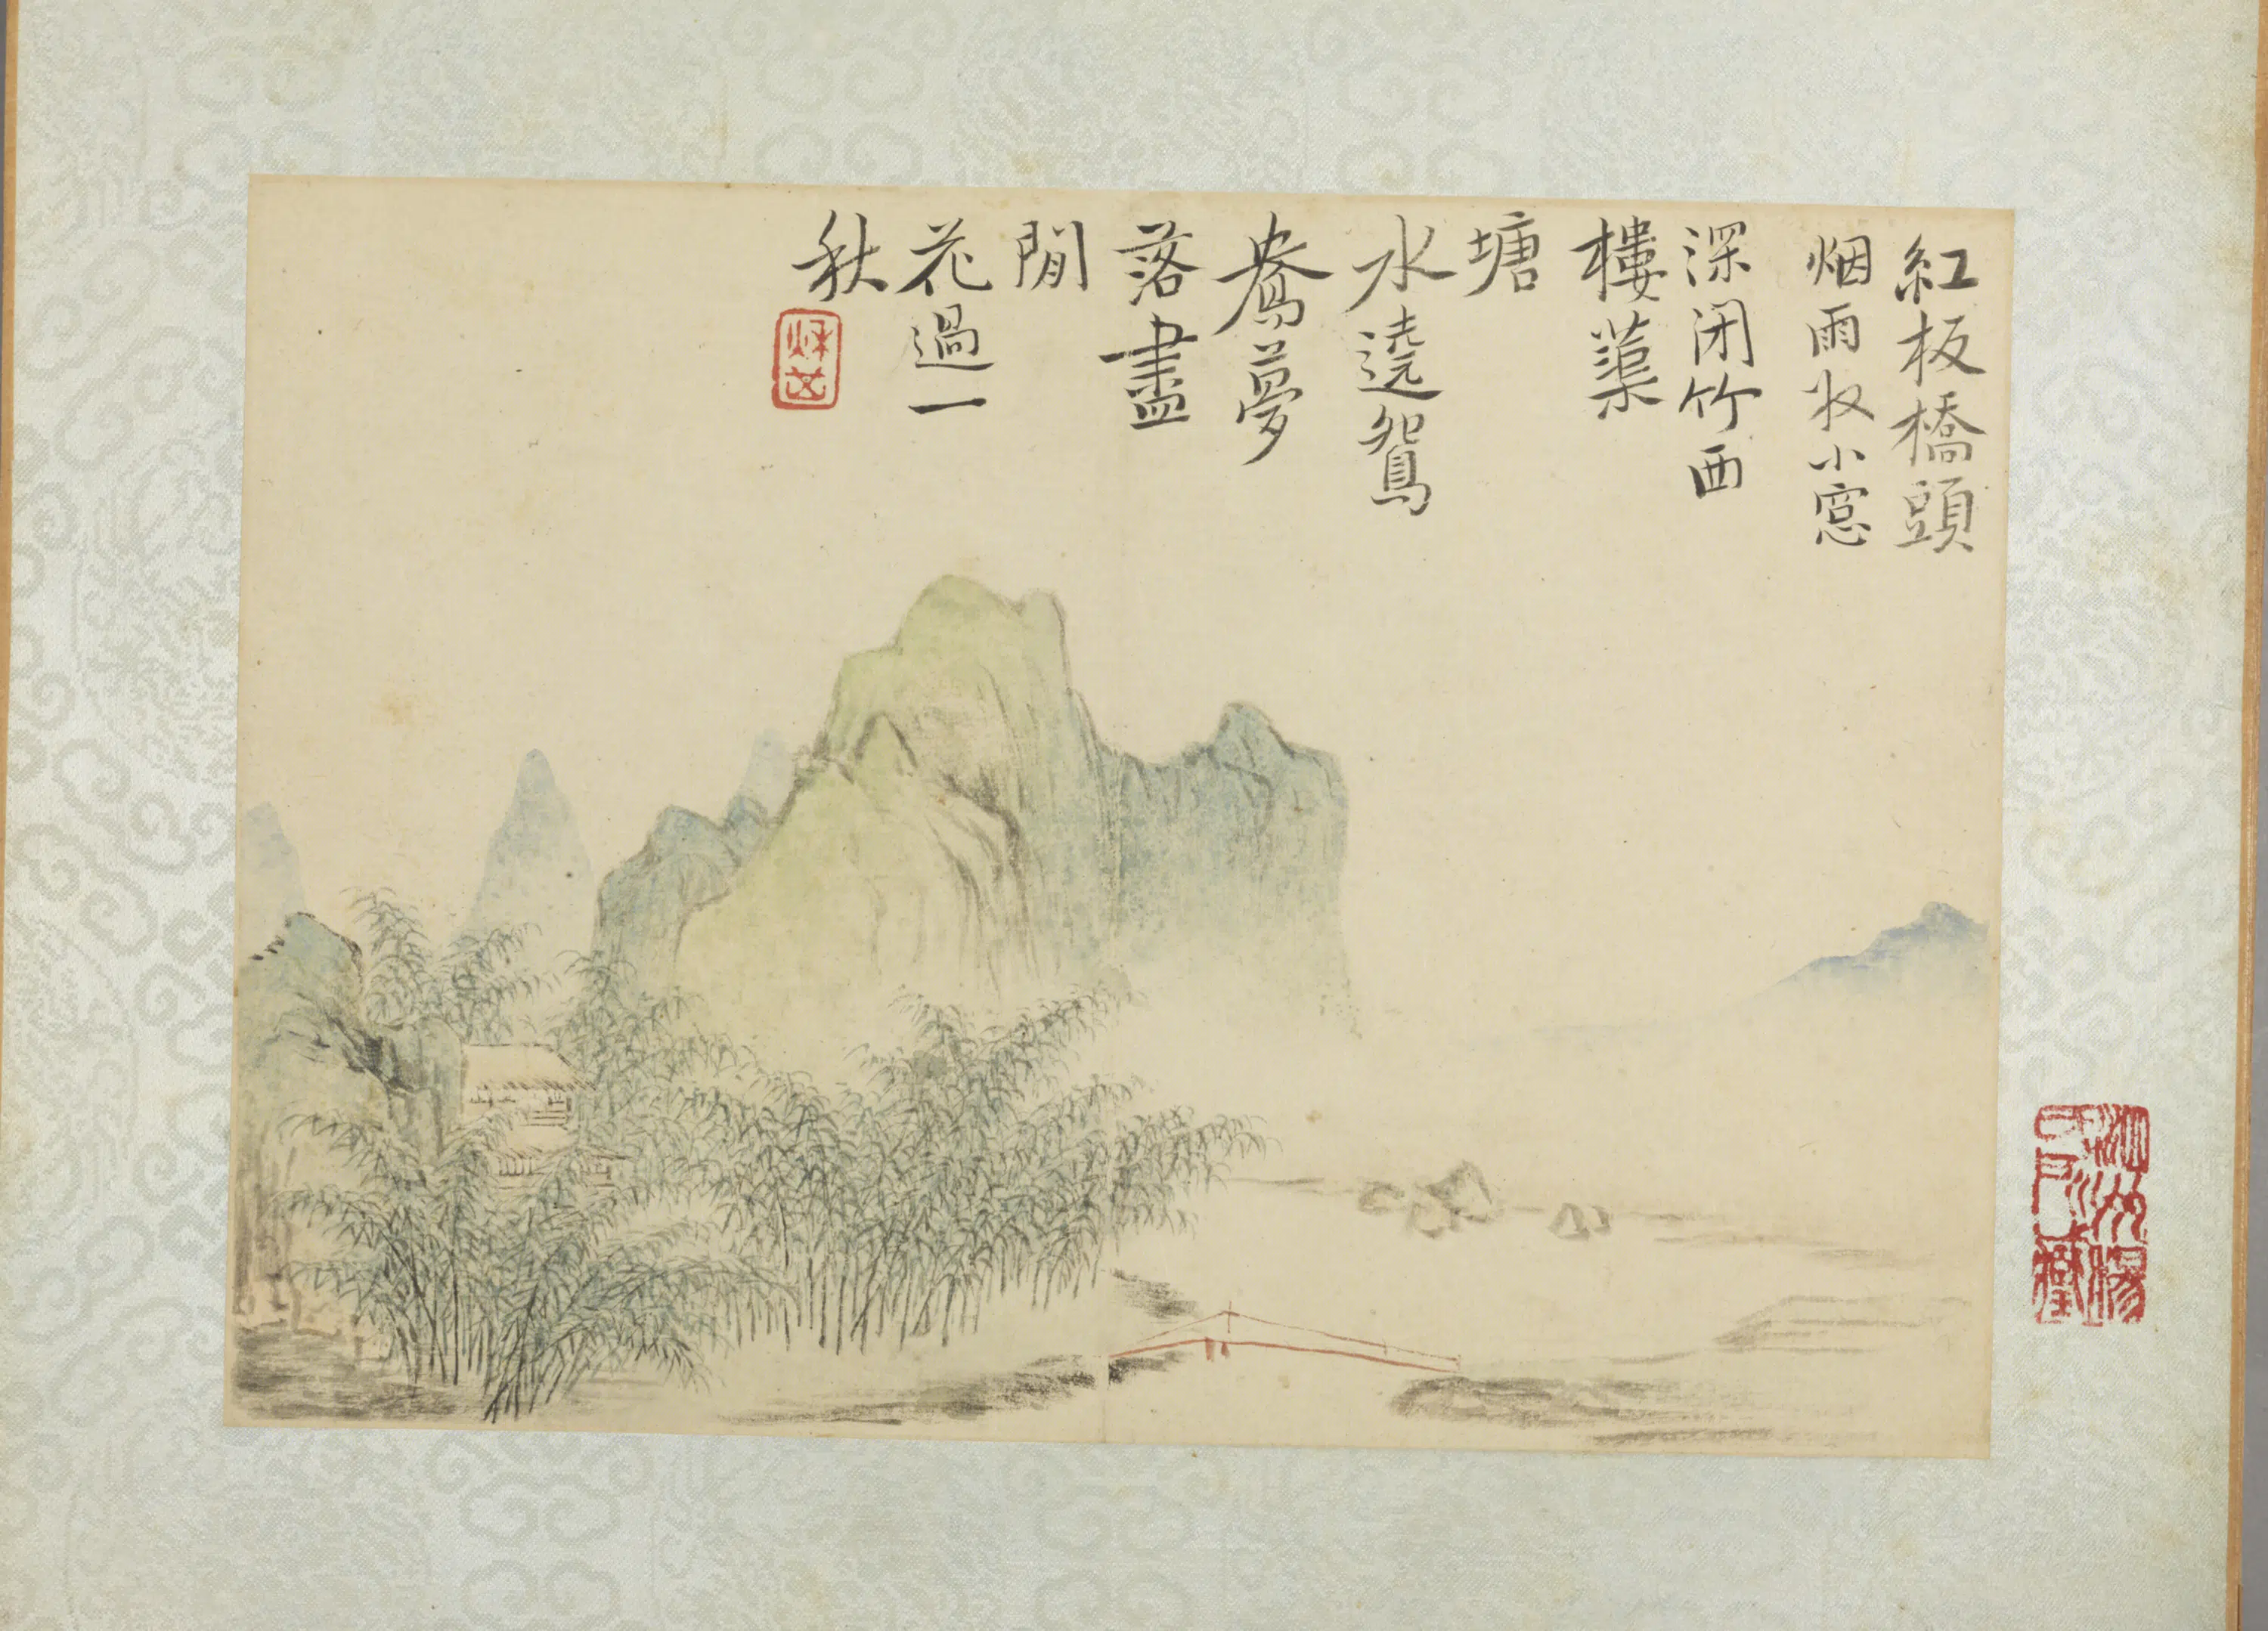 紅板橋頭
烟雨收小窓
深閉竹西
樓蕖
塘
水遶鴛
鴦夢
落盡
閒
花過一
秋